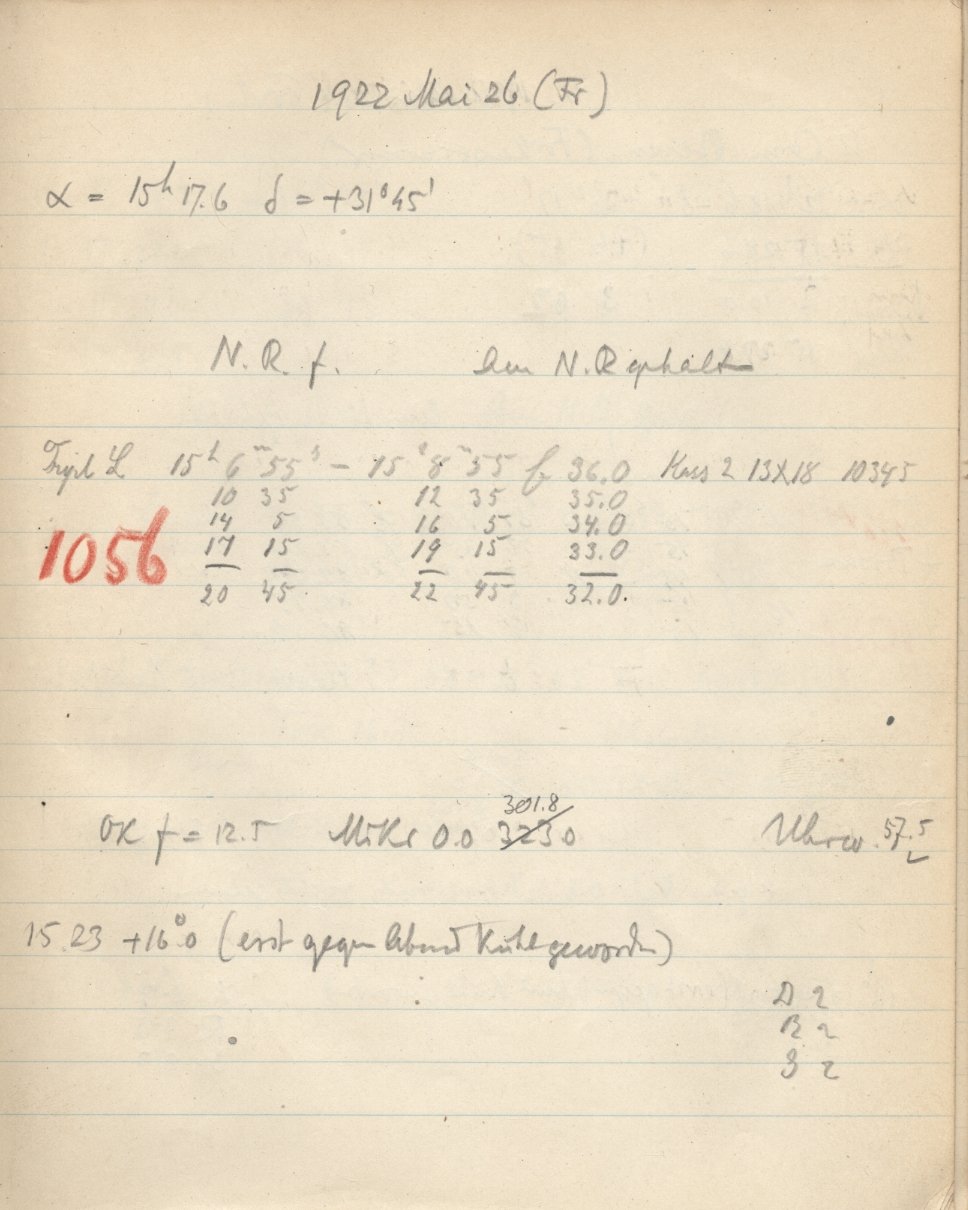 1922 Mai 26 (Fr)
α = 15h 17.6 δ = +31°45'
N. R. f. N. R. gehalt
Tripl L 15h 6m 55s – 15h 8m 55 f 36.0 Kass 2 13X18 10345
10 35 12 35 35.0
14 5 16 5 34.0
1056 17 15 19 15 33.0
20 45 22 45 32.0.
301.8
OK f = 12.5 Mikr 0.0 323.0 Uhrw. 57.5
15.23 +16°.0 (erst gegen Abend kühl geworden)
D 2
R 2
S 2